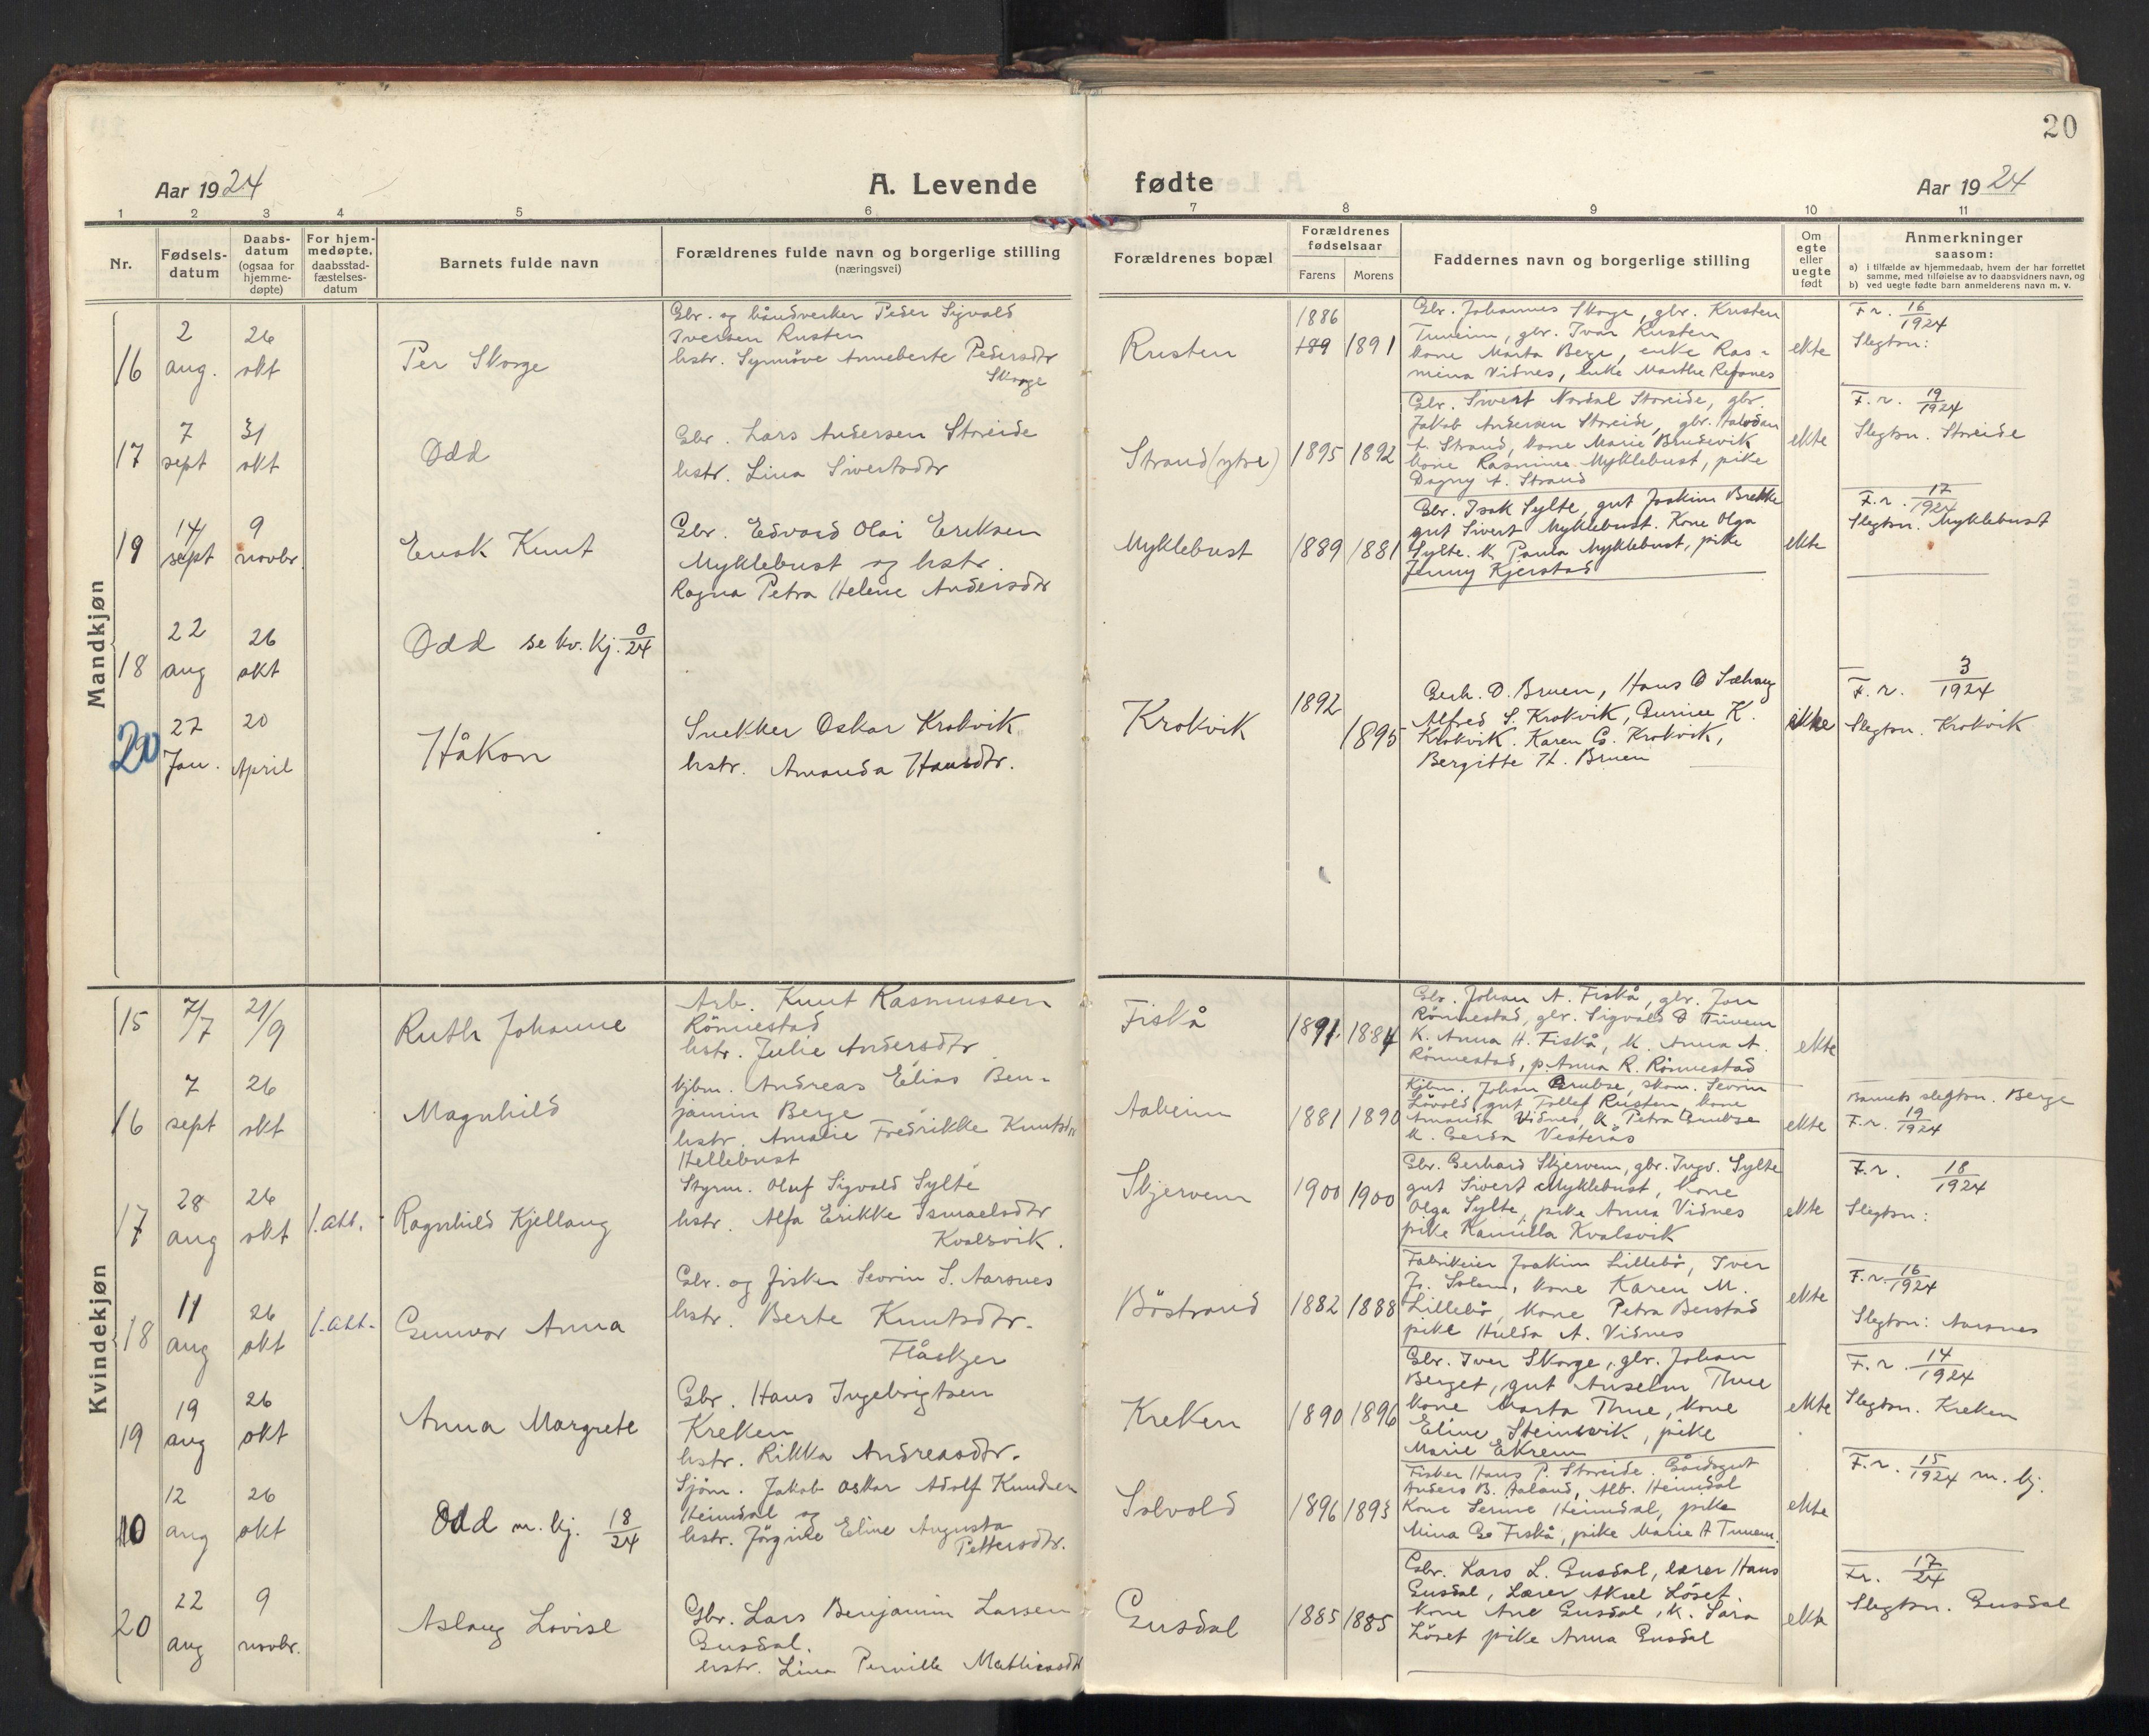 20
Aar 1924
A. Levende fødte
Aar 1924
1 2 3 4 5 6 7 8 9 10 11
Nr.
Fødsels-
datum
Daabs-
datum
(ogsaa for
hjemme-
døpte)
For hjem-
medøpte,
daabsstad-
fæstelses-
datum
Barnets fulde navn
Forældrenes fulde navn og borgerlige stilling
(næringsvei)
Forældrenes bopæl
Forældrenes
fødselsaar
Farens Morens
Faddernes navn og borgerlige stilling
Om
egte
eller
uegte
født
Anmerkninger
saasom:
a) i tilfælde av hjemmedaab, hvem der har forrettet
samme, med tilføielse av to daabsvidners navn, og
b) ved uegte fødte barn anmelderens navn m. v.
Mandkjøn
16
2
aug.
26
okt
Per Skorge
Gbr. og håndverker Peder Sigvald
Iversen Rusten
hstr. Synnöve Anneberte Pedersdtr
Skorge
Rusten
1886
189 1891
Gbr. Johannes Skorge, gbr. Kristen
Tunheim, gbr. Ivar Rusten
kone Marta Berge, enke Ras-
mina Vidnes, enke Marthe Refsnes
ekte
F. r. 16/1924
Slegtsn:
17
7
sept
31
okt
Odd
Gbr. Lars Andersen Storeide
hstr. Lina Sivertsdtr
Strand (ytre)
1895 1892
Gbr. Sivert Nordal Storeide, gbr.
Jakob Andersen Storeide, gbr. Halvdan
A. Strand, kone Marie Brudevik
kone Rasmine Myklebust, pike
Dagny A. Strand
ekte
F. r. 19/1924
Slegtsn. Storeide
19
14
sept
9
novbr.
Ensk Knut
Gbr. Edvard Olai Eriksen
Myklebust og hstr.
Ragna Petra Helene Andersdtr
Myklebust
1889 1881
Gbr. Isak Sylte, gut Joakim Brekke
gut Sivert Myklebust. Kone Olga
Sylte. K. Paula Myklebust, pike
Jenny Kjerstad
ekte
F. r. 17/1924
Slegtsn. Myklebust
18
22
aug
26
okt
Odd se kv. kj. 0/24
20
27
Jan.
20
April
Håkon
Snekker Oskar Krokvik
hstr. Amanda Hansdtr.
Krokvik
1892
1895
Gerh. O. Bruen, Hans O Sæhaug
Alfred S. Krokvik, Gurine K.
Krokvik. Karen G. Krokvik,
Bergitte H. Bruen
ekte
F. r. 3/1924
Slegtsn. Krokvik
Kvindekjøn
15
7/7
21/9
Ruth Johanne
Arb. Knut Rasmussen
Rönnestad
hstr. Julie Andersdtr
Fiskå
1891. 1884
Gbr. Johan A. Fiskå, gbr. Jon
Rönnestad, gbr. Sigvald O Tunem
K. Anna H. Fiskå, K. Anna A.
Rönnestad, p. Anna R. Rönnestad
ekte
16
7
sept
26
okt
Magnhild
kjbm. Andreas Elias Ben-
jamin Berge
hstr. Amalie Fredrikke Knutsdtr
Hellebust
Aaheim
1881 1890
Kjbm. Johan Grubse, skom. Severin
Lövold, gut Tollef Rusten kone
Amanda Vidnes, K. Petra Grubse
K. Gerda Vesterås
ekte
Barnets slegtsn. Berge
F. r. 19/1924
17
28
aug
26
okt
1. att.
Ragnhild Kjellaug
Styrm. Oluf Sigvald Sylte
hstr. Alfa Erikke Ismaelsdtr
Kvalsvik.
Skjervem
1900 1900
Gbr. Gerhard Skjervem, gbr. Ingv. Sylte
gut Sivert Myklebust, kone
Olga Sylte, pike Anna Vidnes
pike Kamilla Kvalsvik
ekte
F. r. 18/1924
Slegtsn:
18
11
aug
26
okt
1. att.
Gunvor Anna
Gbr. og fisker Severin S. Aarsnes
hstr. Berte Knutsdtr.
Flåskjer
Böstrand
1882 1888
Fabrikeier Joakim Lillebö, Iver
J. Solem, kone Karen M.
Lillebö, kone Petra Berstad
pike Hulda A. Vidnes
ekte
F. r. 16/1924
Slegtsn: Aarsnes
19
19
aug
26
okt
Anna Margrete
Gbr. Hans Ingebrigtsen
Kreken
hstr. Rikka Andreasdtr.
Kreken
1890 1896
Gbr. Iver Skorge, gbr. Johan
Berget, gut Anselm Thue
kone Marta Thue, kone
Eline Steinsvik, pike
Marie Ekrem
ekte
F. r. 14/1924
Slegtsn. Kreken
10
12
aug
26
okt
Odd m. kj. 18/24
Sjöm. Jakob Oskar Adolf Knudsen
Heimdal og
hstr. Jörgine Eline Augusta
Pettersdtr.
Solvold
1896 1893
Fisker Hans P. Storeide. Gårdsgut
Anders B. Aaland, Alb. Heimdal
Kone Serine Heimdal, pike
Mina Ge Fiskå, pike Marie A Tunem
ekte
F. r. 15/1924 m. kj.
20
22
aug
9
novbr.
Aslaug Lovise
Gbr. Lars Benjamin Larsen
Gusdal.
hstr. Lina Pernille Mathiasdtr
Gusdal
1885 1885
Gbr. Lars L. Gusdal, lærer Hans
Gusdal, Lærer Aksel Löset.
kone Ane Gusdal, K. Sara
Löset pike Anna Gusdal
ekte
Fr. 17/24
Slegtsn. Gusdal